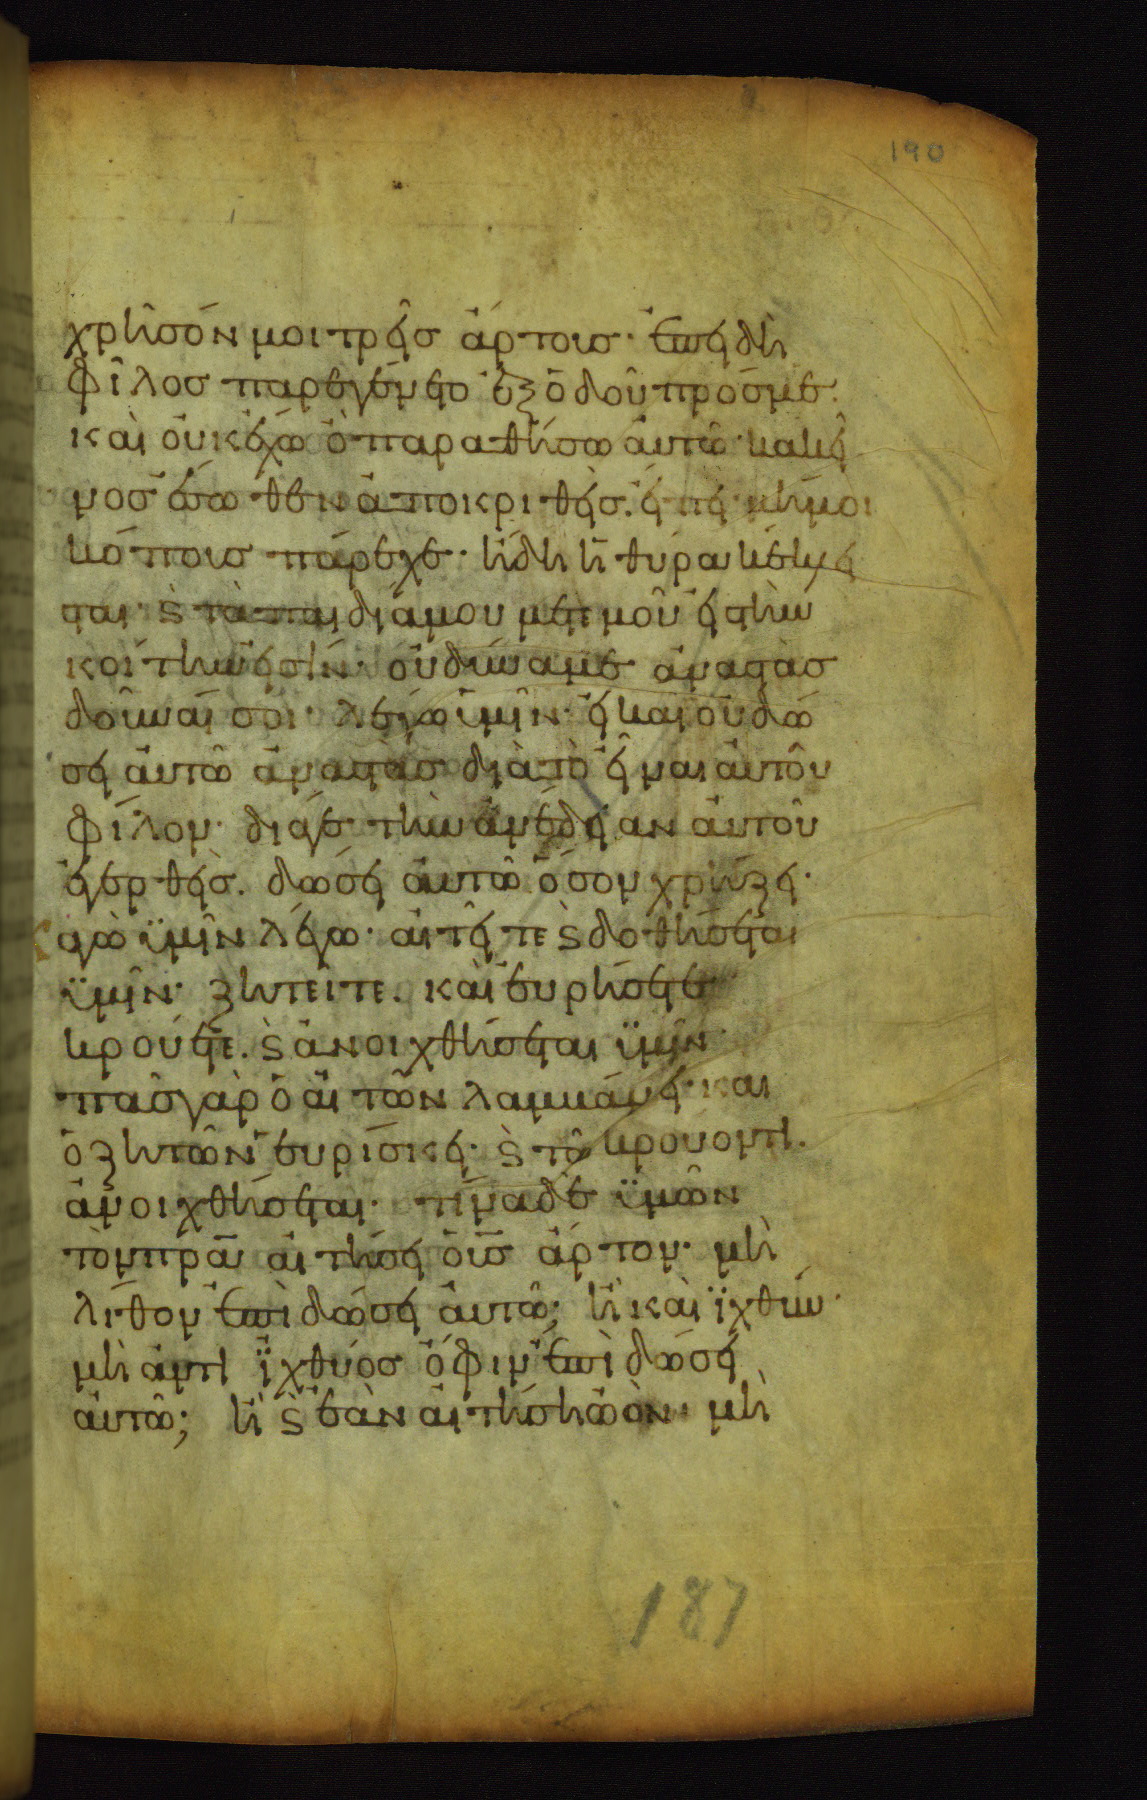 190
χρῆσόν μοι τρεῖσ ἄρτουσ· ἐπειδὴ
φῖλοσ παρεγένετο ἐξ ὁδοῦ πρόσ με.
καὶ οὐκ ἔχω ὃ παραθήσω αὐτῶ· κακεῖ
νοσ ἔσωθεν ἀποκριθεὶσ. εἴπει· μή μοι
κόπουσ πάρεχε· ἤδη ἡ θύρα κέκλει
σται· ϗ τὰ παιδία μου μετ εμοῦ εἰσ τὴν
κοίτην εἰσίν· οὐ δύναμε ἀναστὰσ
δοῦναί σοι· λέγω ὑμῖν· εἰ καὶ οὐ δώ
σει αὐτῶ ἀναστὰσ διὰ τὸ εἶναι αὐτοῦ
φίλον· διά γε τὴν ἀνέδειαν αὐτοῦ
ἐγερθεὶσ. δώσει αὐτῶ ὅσον χρήζει·
Καγὼ ϋμῖν λέγω· αἰτεῖτε ϗ δοθήσεται
ϋμῖν· ζητεῖτε. καὶ εὑρήσετε
κρούετε. ϗ ἀνοιχθήσεται ϋμῖν·
πᾶσ γὰρ ὁ αἰτῶν λαμβάνει· και
ὁ ζητῶν εὑρίσκει· ϗ τῶ κρούοντι.
ἀνοιχθήσεται· τίνα δὲ ϋμῶν
τὸν πρ̅α̅ αἰτήσει ὁ υ̅ς̅ ἄρτον· μὴ
λίθον ἐπιδώσει αὐτῶ; ἢ καὶ ϊχθύν·
μὴ ἀντι ϊχθύοσ ὄφιν ἐπιδώσει
αὐτῶ; ἢ ϗ ἐὰν αἰτήσῃ ὠὸν· μὴ
187